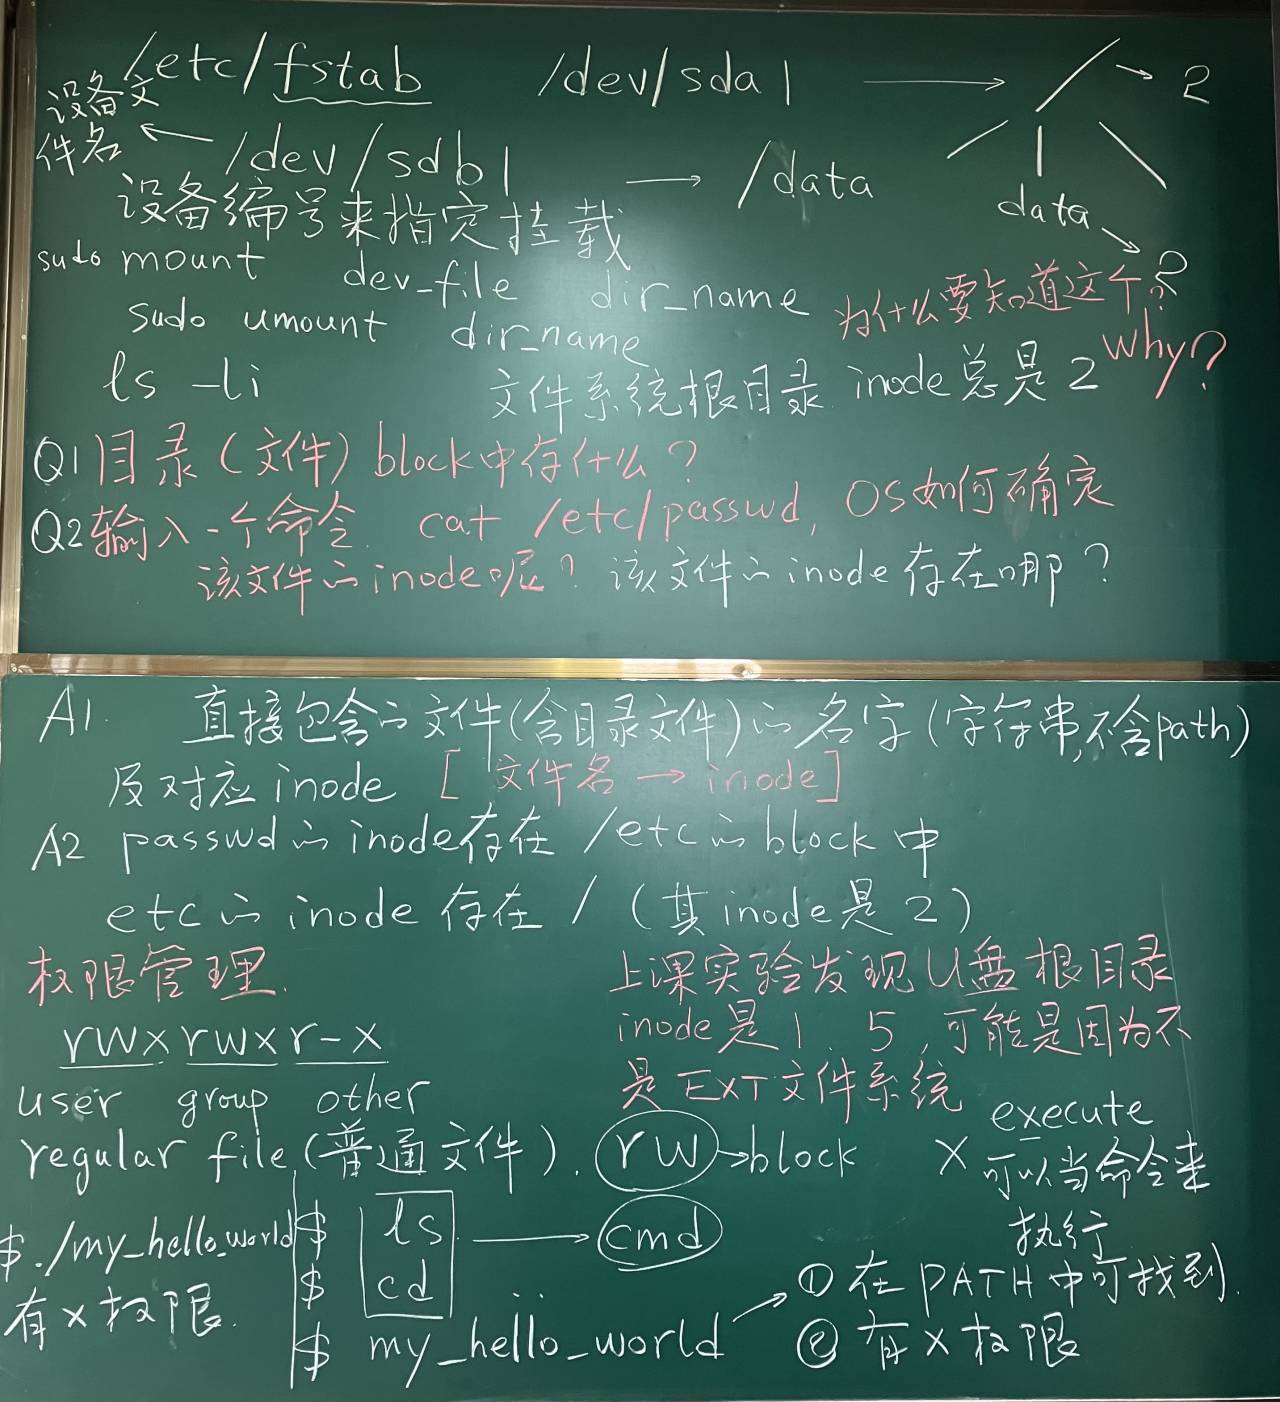 /etc/fstab /dev/sda1 → / → 2
设备文件名 ← /dev/sdb1 → /data
data → 2
设备编号来指定挂载
sudo mount dev_file dir_name
为什么要知道这个?
sudo umount dir_name
why?
ls -li 文件系统根目录 inode总是2
Q1 目录(文件) block中存什么?
Q2 输入一个命令. cat /etc/passwd, OS如何确定
该文件的inode呢? 该文件的inode存在哪?
A1. 直接包含的文件(含目录文件)的名字(字符串,不含path)
及对应inode [文件名 → inode]
A2 passwd的inode存在 /etc的block中
etc的inode存在 / (其inode是2)
权限管理.
rwxrwxr-x
user group other
上课实验发现U盘根目录
inode是1、5,可能是因为不
是EXT文件系统
regular file (普通文件). rw→block
x execute
可以当命令来
执行
$ ./my_hello_world
有x权限.
$ ls → cmd
$ cd
$ my_hello_world → ①在PATH中可找到.
②有x权限